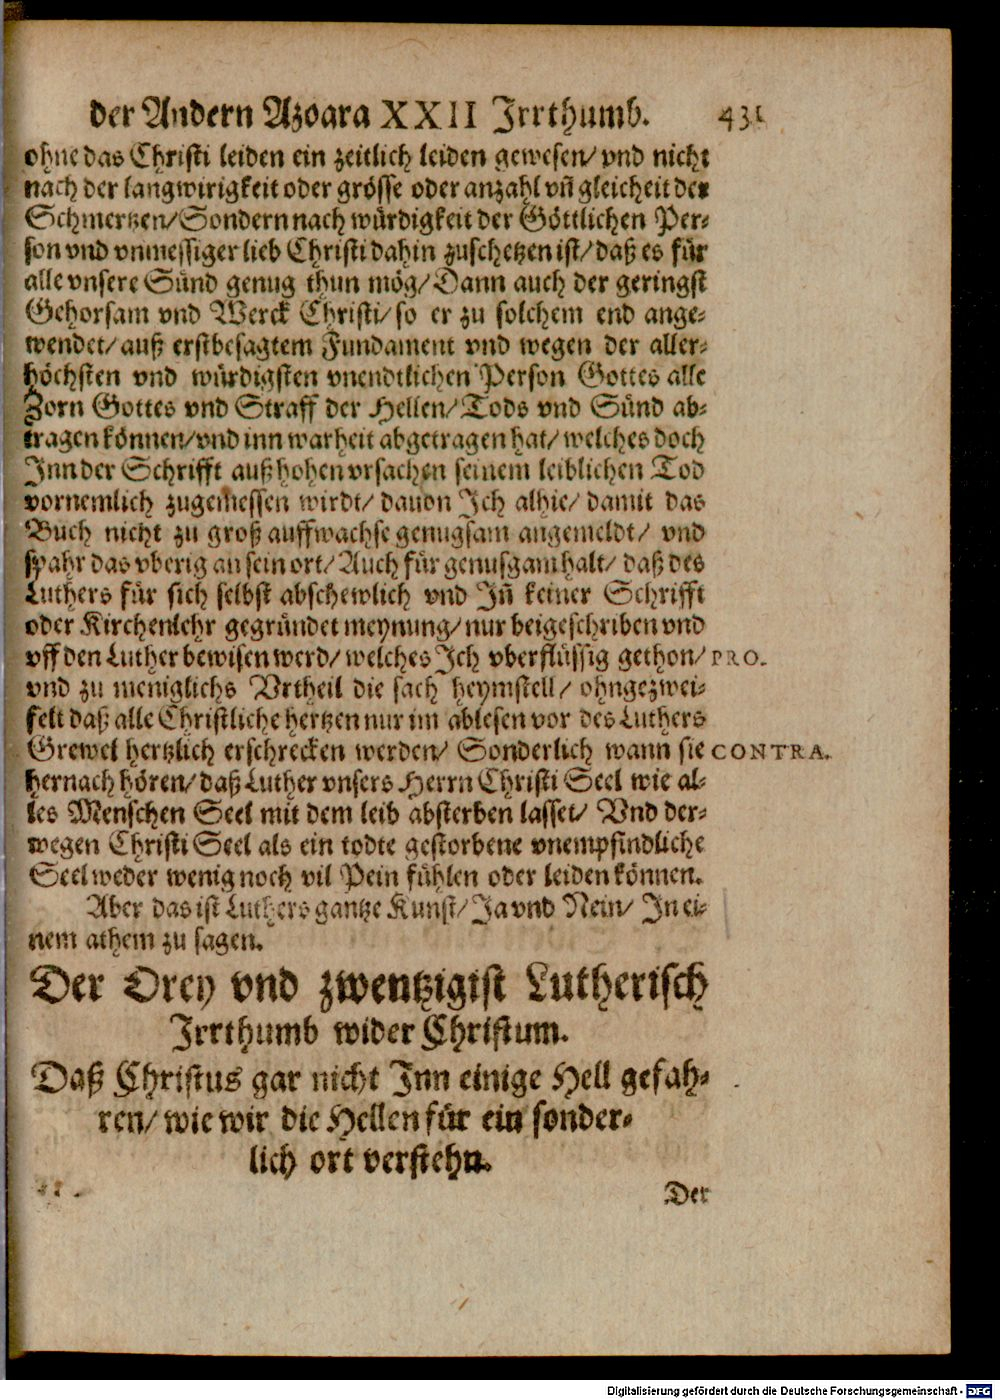 der Andern Azoara XXII Jrrthumb. 431
ohne das Christi leiden ein zeitlich leiden gewesen/ vnd nicht
nach der langwirigkeit oder grösse oder anzahl vñ gleicheit der
Schmertzen/ Sondern nach würdigkeit der Göttlichen Per-
son vnd vnmessiger lieb Christi dahin zuschetzen ist/ daß es für
alle vnsere Sünd genug thun mög/ Dann auch der geringst
Gehorsam vnd Werck Christi/ so er zu solchem end ange-
wendet/ auß erstbesagtem Fundament vnd wegen der aller-
höchsten vnd würdigsten vnendtlichen Person Gottes alle
Zorn Gottes vnd Straff der Hellen/ Tods vnd Sünd ab-
tragen können/ vnd inn warheit abgetragen hat/ welches doch
Jnn der Schrifft auß hohen vrsachen seinem leiblichen Tod
vornemlich zugemessen wirdt/ dauon Jch alhie/ damit das
Buch nicht zu groß auffwachse genugsam angemeldt/ vnd
spahr das vberig an sein ort/ Auch für genusgam halt/ daß des
Luthers für sich selbst abschewlich vnd Jñ keiner Schrifft
oder Kirchenlehr gegründet meynung/ nur beigeschriben vnd
vff den Luther bewisen werd/ welches Jch vberflüssig gethon/ PRO.
vnd zu meniglichs Vrtheil die sach heymstell/ ohngezwei-
felt daß alle Christliche hertzen nur im ablesen vor des Luthers
Grewel hertzlich erschrecken werden/ Sonderlich wann sie CONTRA.
hernach hören/ daß Luther vnsers Herrn Christi Seel wie al-
les Menschen Seel mit dem leib absterben lasset/ Vnd der-
wegen Christi Seel als ein todte gestorbene vnempfindliche
Seel weder wenig noch vil Pein fühlen oder leiden können.
Aber das ist Luthers gantze Kunst/ Ja vnd Nein/ Jn ei-
nem athem zu sagen.
Der Drey vnd zwentzigist Lutherisch
Jrrthumb wider Christum.
Daß Christus gar nicht Jnn einige Hell gefah-
ren/ wie wir die Hellen für ein sonder-
lich ort verstehn.
Der
Digitalisierung gefördert durch die Deutsche Forschungsgemeinschaft - DFG